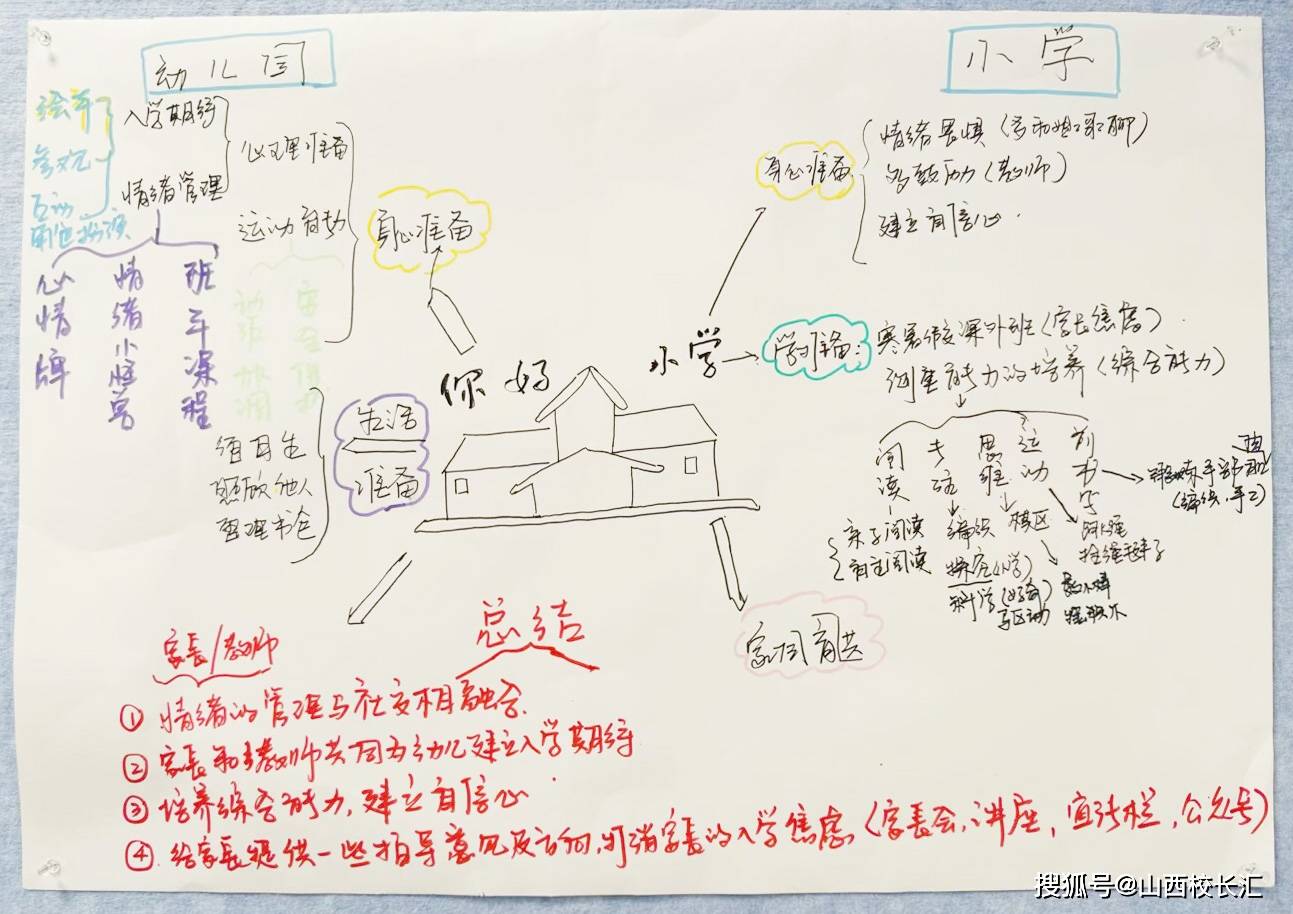 幼儿园
绘本
参观
互动
角色扮演
入学期待
情绪管理
心理准备
运动
身心准备
心情牌
情绪小怪兽
班本课程
你好
小学
生活
准备
照顾他人
整理书包
小学
身心准备
情绪畏惧(
多鼓励(教师)
建立自信心.
学习准备:
寒暑假课外班(家长焦虑)
能力的培养(综合能力)
阅读
专注
思维
运动
前书写
亲子阅读
自主阅读
编织
探究(小学)
科学(好奇)
驱动
棋区
锻炼手部
(编织,手工)
家园共育
总结
家长/教师
① 情绪的管理与社交相融合.
② 家长和教师共同为幼儿建立入学期待
③ 培养综合能力,建立自信心.
④ 给家长提供一些指导意见及方向,打消家长的入学焦虑(家长会,讲座,宣传栏,公众号)
搜狐号@山西校长汇